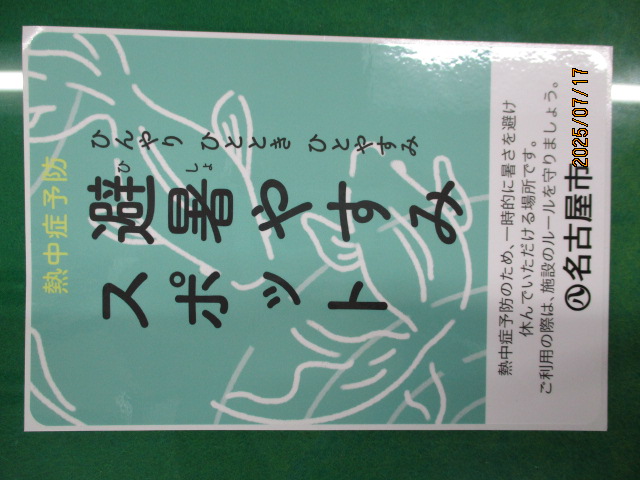 熱中症予防
ひんやり ひととき ひとやすみ
避暑やすみ
ひ しょ
スポット
熱中症予防のため、一時的に暑さを避け
休んでいただける場所です。
ご利用の際は、施設のルールを守りましょう。
名古屋市
2025/07/17